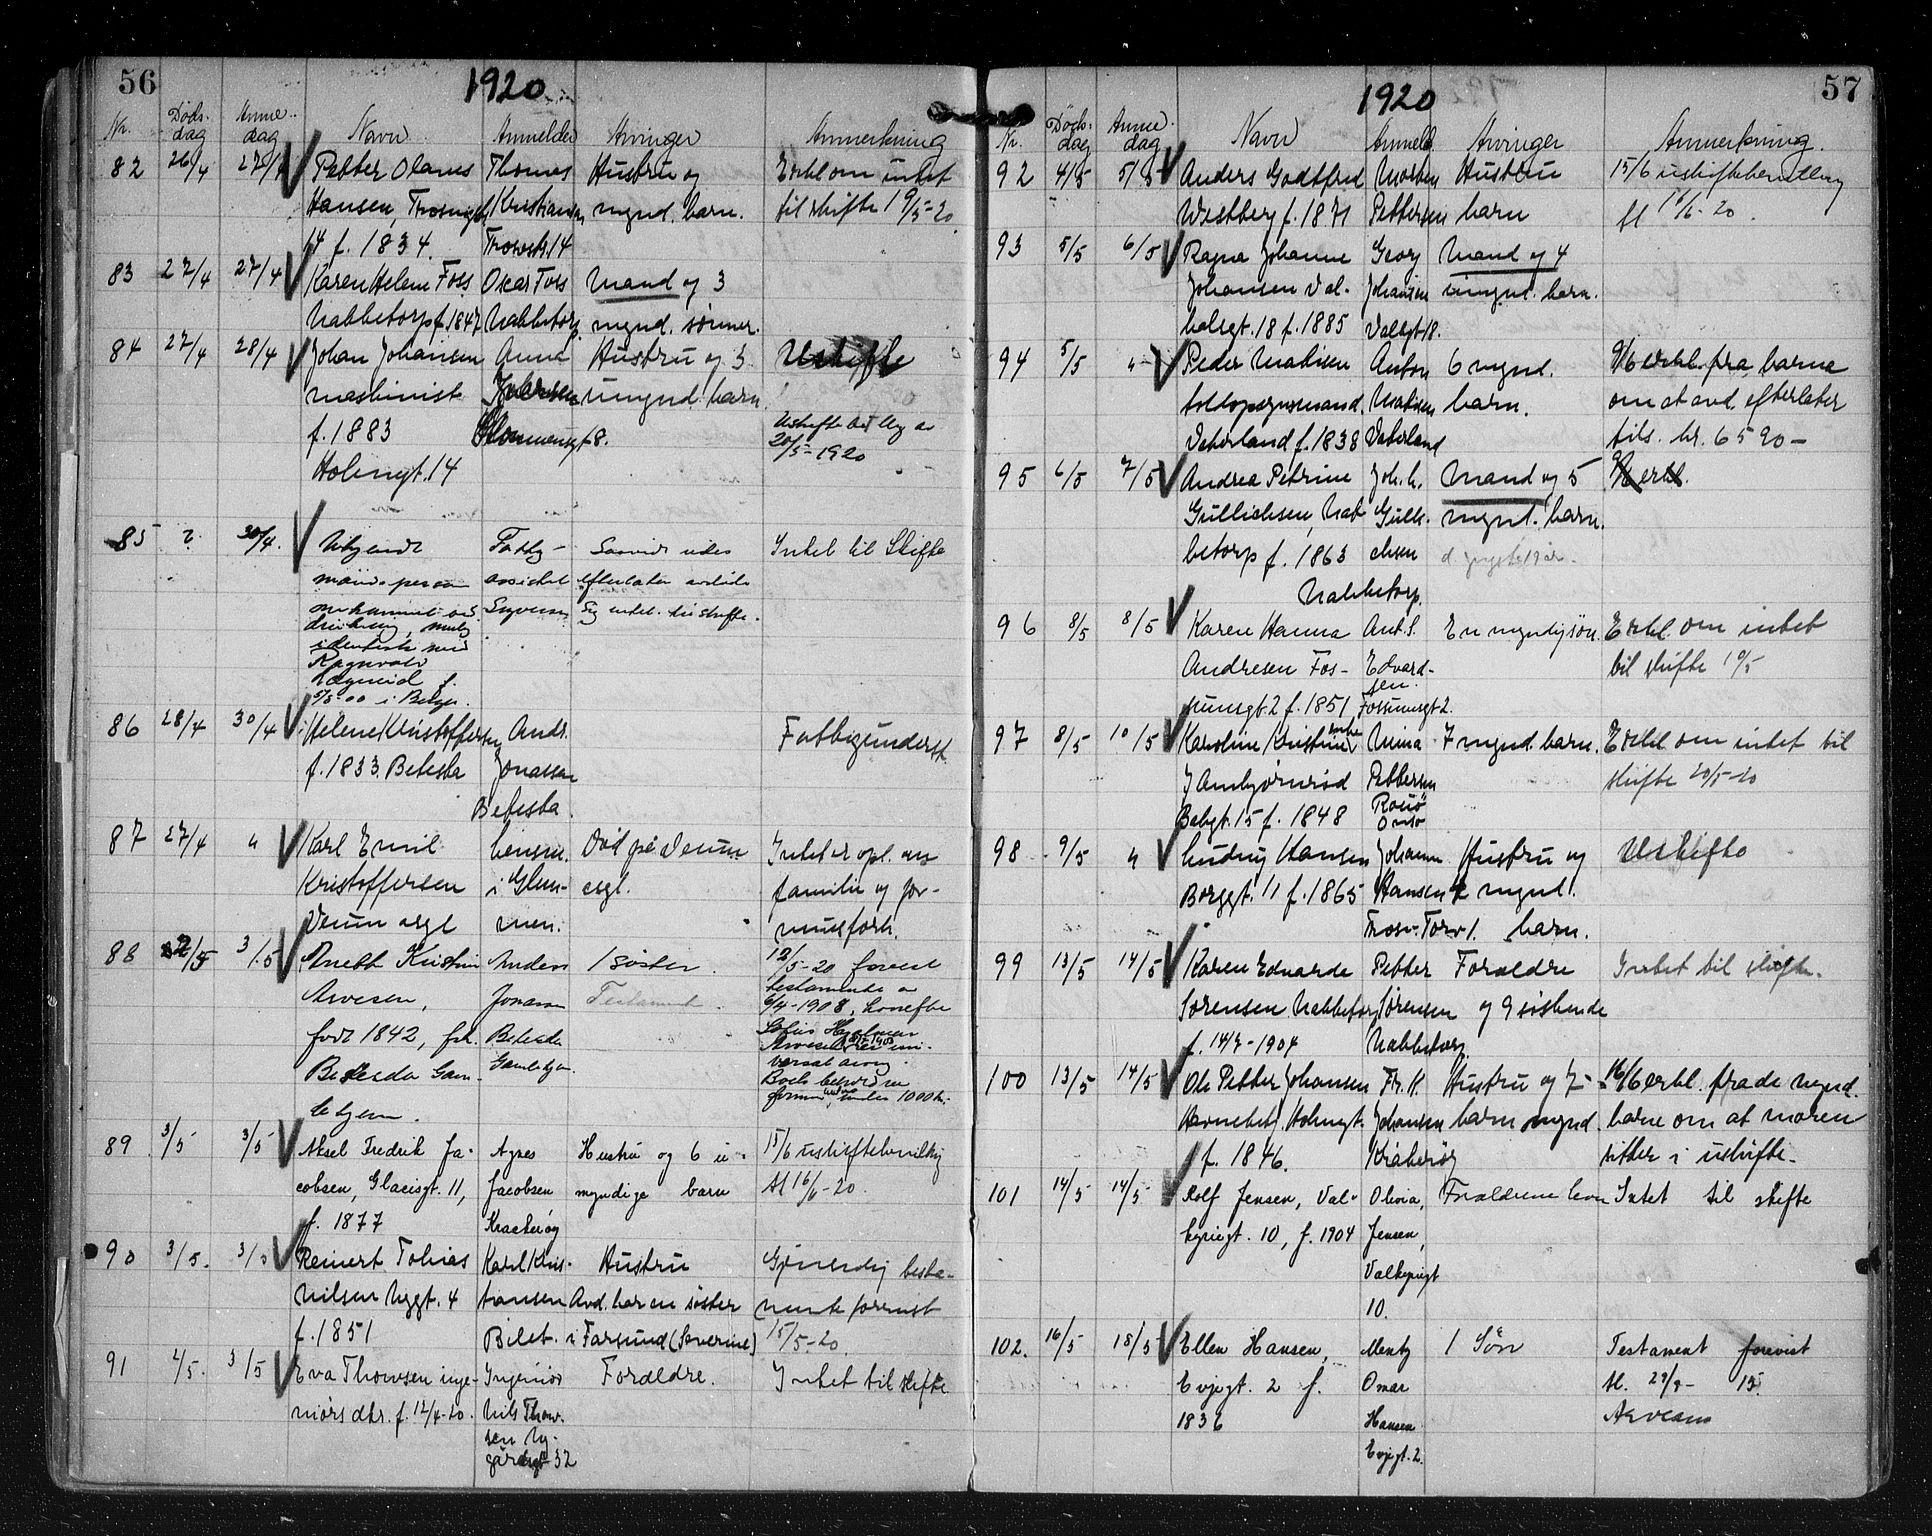 56
1920
Nr. Døds-dag Anme.dag Navn Anmelder Arvinger Anmerkning
82 26/4 27/4 Petter Olaus Thomas Hustru og Erkl om intet
Hansen, Kristiansen mynd. barn. til skifte 19/5-20
14 f. 1834. 14
83 27/4 27/4 Karen Helene Foss Oscar Foss Mand og 3
Nabbetorp f. 1847 Nabbetorp mynd. sønner.
84 27/4 28/4 Johan Johansen Anna Hustru og 3 Uskifte
maskinist Johansen umynd. barn.
f. 1883 Glommengt 8. Uskifte bev
20/5-1920
Holmgt. 14
85 ? 30/4. Ukjendt Fattig- Intet til Skifte
mandsperson assistent efterlater
omkommet ved intet til skifte.
drukning, mulig
identisk med
Ragnvald
f.
5/5-00 i Bergen.
86 28/4 30/4 Helene Kristoffersen Andr. Fattigunderst.
f. 1833. Betesta Jonassen
Betesta.
87 27/4 " Karl Emil Lensm. Død på Veum Intet er opl. om
Kristoffersen i Glem- asyl. familie og for-
Veum asyl men. muesforh.
88 2/5 3/5 Anett Kristine Anders 1 søster. 12/5-20 forevist
Arvesen, Jonassen Testament. testamente av
født 1842, frk. Betesda 6/4-1908, hvorefter
Betesda Gam- Gamlehjem
lehjem. universalarving.
Boets beholdn
under 1000 kr.
89. 3/5 3/5 Aksel Fredrik Ja- Agnes Hustru og 6 u- 15/6 uskiftebevilling
cobsen, Glacisgt. 11, Jacobsen myndige barn til 16/6-20.
f. 1877 Kraakerøy
90 3/5. 3/5 Reinert Tobias Karl Kris- Hustru Gjensidig testa-
Nilsen Nygt. 4 tiansen Avd. har en søster mente forevist
f. 1851 Bilet. i Farsund (Severine) 15/5-20.
91 2/5. 3/5 Eva Thowsen inge- Ingeniør Forældre. Intet til skifte
niørs dtr. f. 12/4-20. Nils Thow-
sen Ny-
gårdsgt 32
57
1920
Nr. Døds.dag Anme.dag Navn Anmeld. Arvinger Anmerkning.
92 4/5 5/5 Anders Godtfred Morten Hustru 15/6 uskiftebevilling
Westberg f. 1871 Pettersen barn til 16/6-20.
93 5/5 6/5 Ragna Johanne Georg Mand og 4
Johansen Val- Johansen umynd. barn.
halsgt. 18 f. 1885 Valhgt 18.
94 5/5 " Peder Matisen Anton 6 mynd. 9/6 erkl. fra barna
toldopsynsmand Matisen barn. om at avd. efterlater
Vaterland f. 1838 Vaterland tils. kr. 6590-
95 6/5 7/5 Andrea Petrine Joh. L. Mand og 5 9/6 erkl.
Gullichsen, Nab- Gulli- mynd. barn.
betorp f. 1863 chsen d yngste 19 år.
Nabbetorp.
96 8/5 8/5 Karen Hanna Ant. S. En myndig søn. Erkl. om intet
Andresen Fos- Edvard- til skifte 10/5
sumsgt 2 f. 1851 sen Fossumsgt 2.
97 8/5 10/5 Karoline Kristine enke Mina 7 mynd. barn. Erkl om intet til
Arnbjørnrød Pettersen skifte 20/5-20
Babgt. 15 f. 1848 Rauø
Onsø
98 9/5 " Ludvig Hansen Johanne Hustru og Uskifte
Borggt. 11 f. 1865 Hansen 2 mynd.
Torv 1. barn.
99 13/5 14/5 Karen Edvarda Petter Forældre Intet til skifte.
Sørensen Nabbetorp Sørensen og 9 søskende
f. 14/7-1904 Nabbetorp.
100 13/5 14/5 Ole Petter Johansen Fr. H. Hustru og 7 16/6 erkl. fra de mynd.
Havnebetj. Holmgt. Johansen barn mynd. barn om at moren
f. 1846. Kråkerøy sitter i uskifte.
101 14/5 14/5 Rolf Jensen, Val- Olivia Forældrene lever Intet til skifte
kyriegt. 10, f. 1904 Jensen,
Valkyrigt
10.
102. 16/5 18/5 Ellen Hansen, Mentz 1 Søn Testament forevist
Evjegt. 2 f. Omar 15.
1836 Hansen
Evjegt. 2.